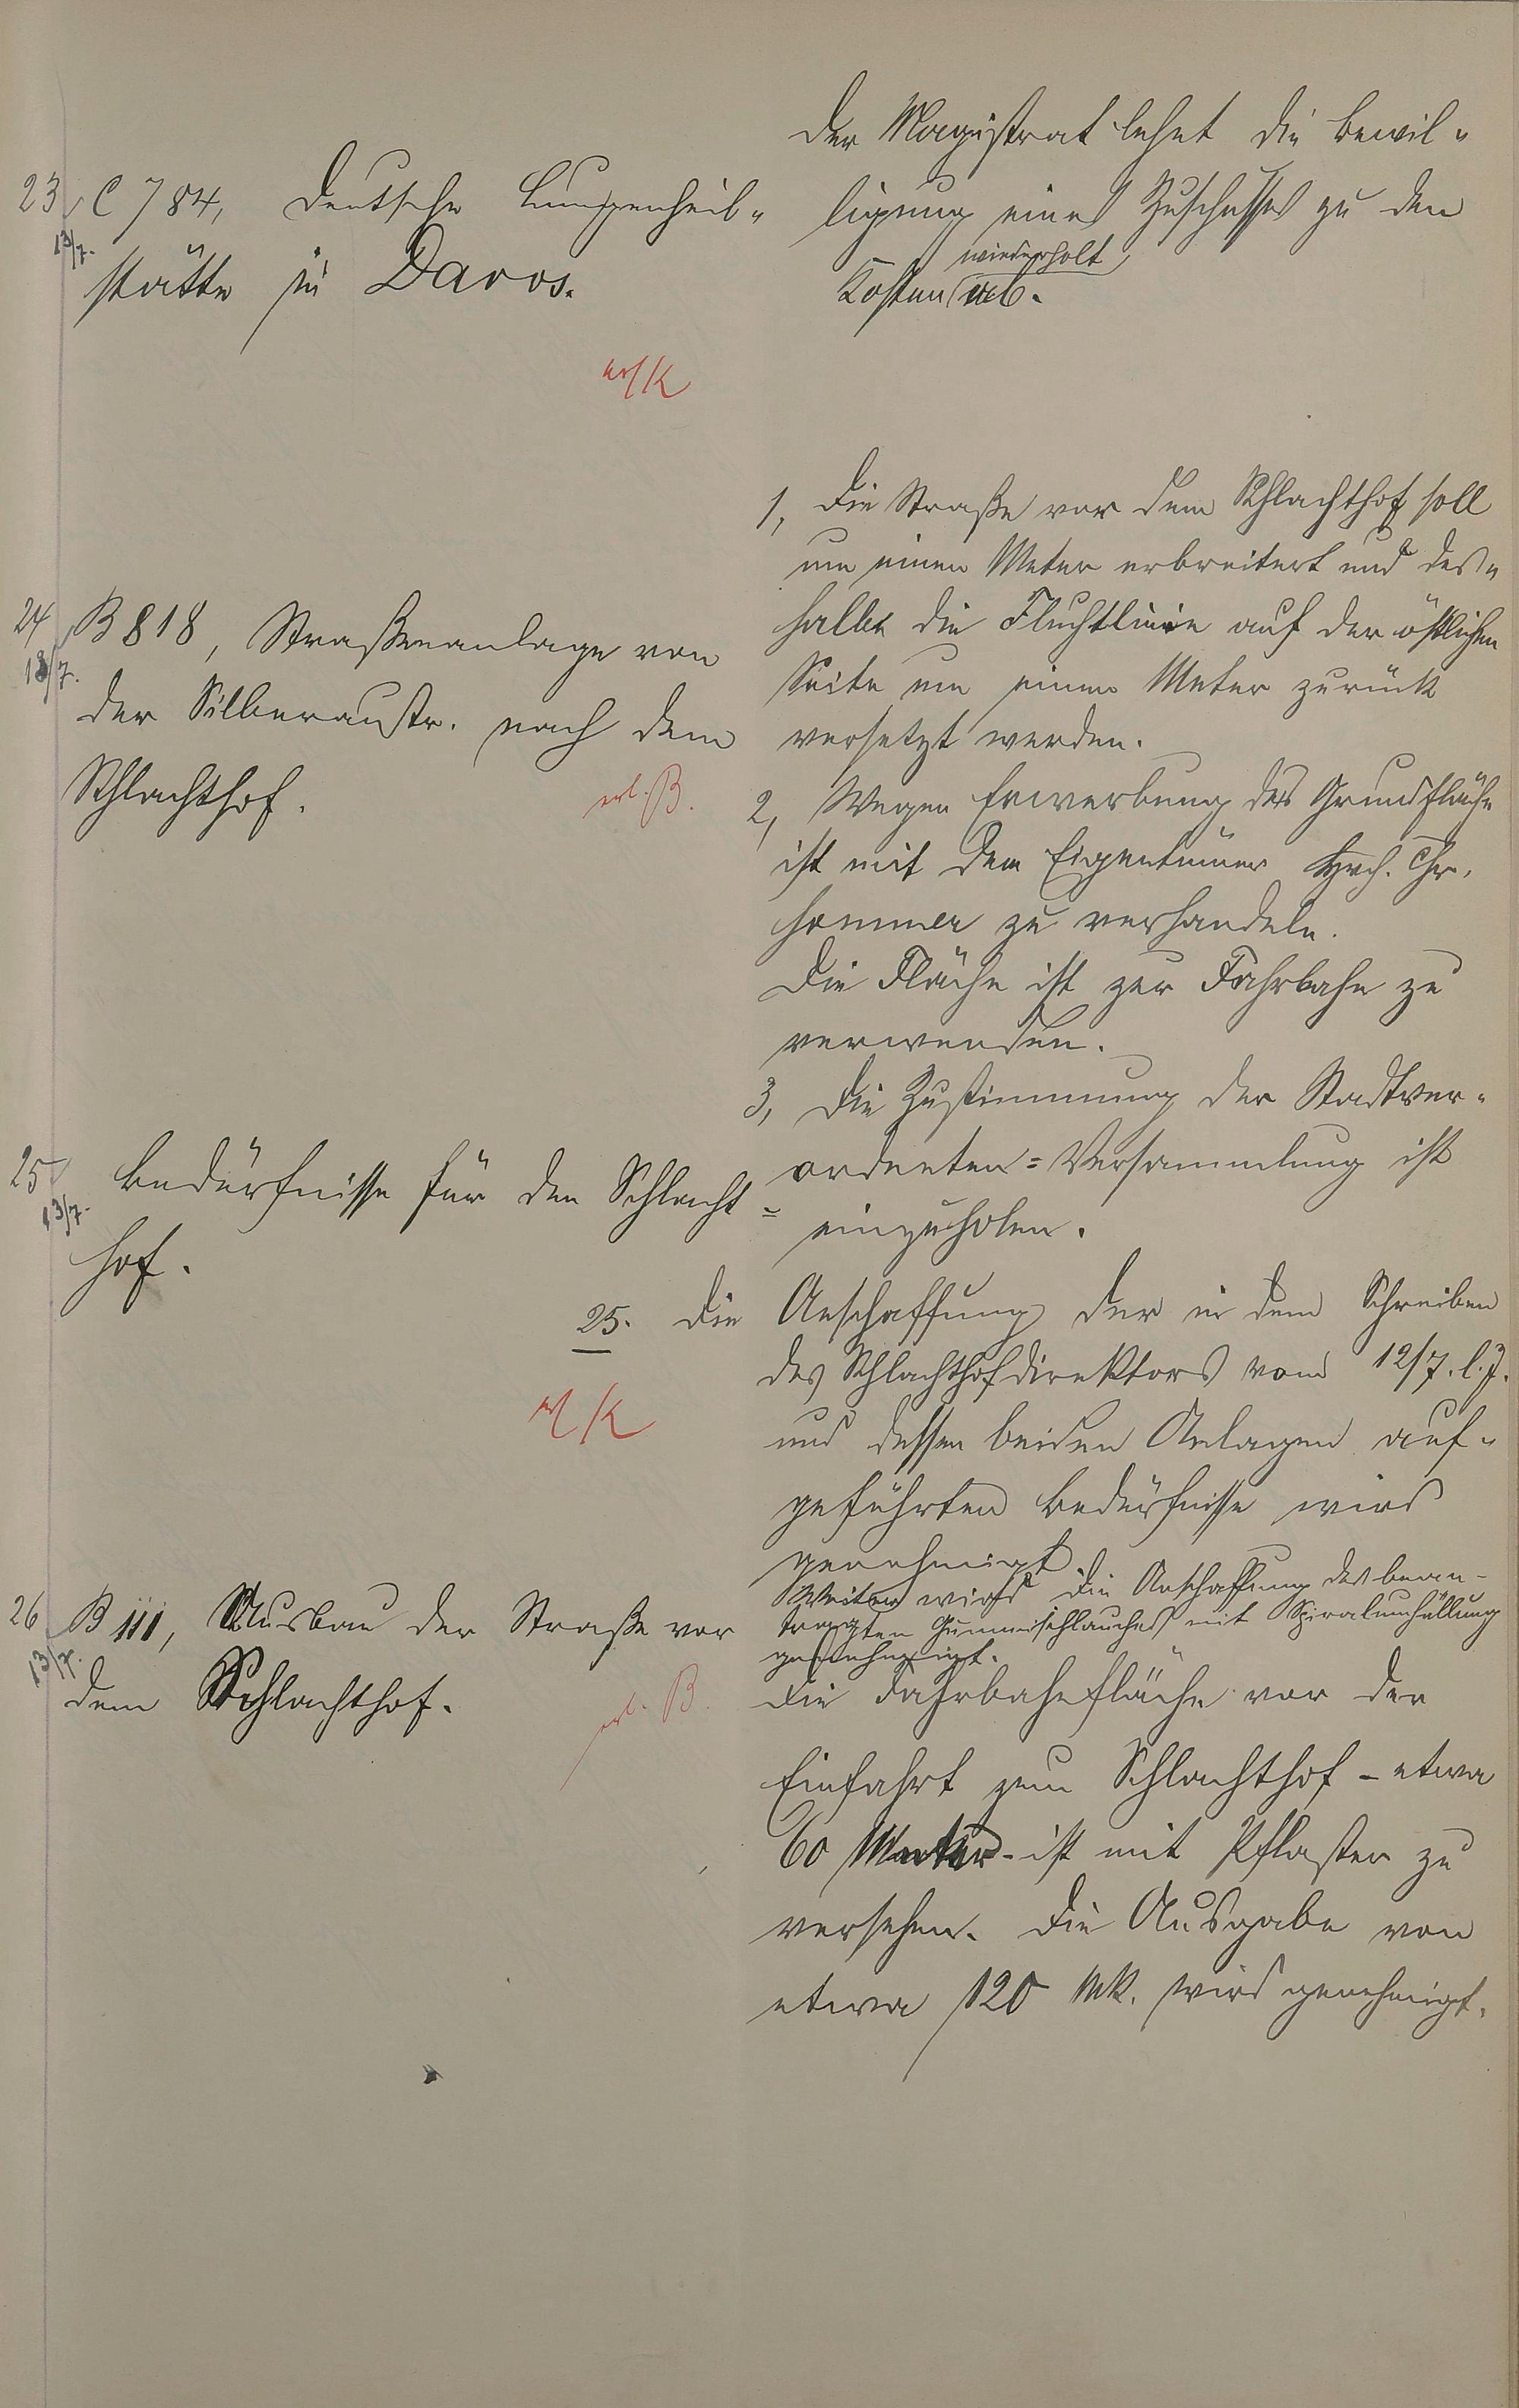 23 C 784, Deutsche Lungenheil-
13/7.
stätte in Davos.
erl K
Der Magistrat lehnt die Bewil-
ligung eines Zuschusses zu den
wiederholt
Kosten ab.
24 B 818, Straßenanlage von
13/7.
der Silberaustr. nach dem
Schlachthof.
erl. B.
1, Die Straße vor dem Schlachthof soll
um einen Meter erbreitert und des-
halb die Fluchtlinie auf der östlichen
Seite um einen Meter zurück
versetzt werden.
2, Wegen Erwerbung des Grundfläche
ist mit dem Eigentümer Hrch. Chr.
Hommer zu verhandeln.
Die Fläche ist zur Fahrbahn zu
verwenden.
3, Die Zustimmung der Stadtver-
ordneten=Versammlung ist
einzuholen.
25 Bedürfnisse für den Schlacht=
13/7.
hof.
25. Die Anschaffung der in dem Schreiben
des Schlachthofdirektors vom 12/7. l. J.
und dessen beiden Anlagen auf-
geführten Bedürfnisse wird
genehmigt
Weiter wird die Anschaffung des bean-
tragten Gummischlauches mit Spiralumhüllung
genehmigt.
erl K
26 B 111, Ausbau der Straße vor
13/7.
dem Schlachthof.
erl. B.
Die Fahrbahnfläche vor der
Einfahrt zum Schlachthof - etwa
60 Meter - ist mit Pflaster zu
versehen. Die Ausgabe von
etwa 120 Mk. wird genehmigt.